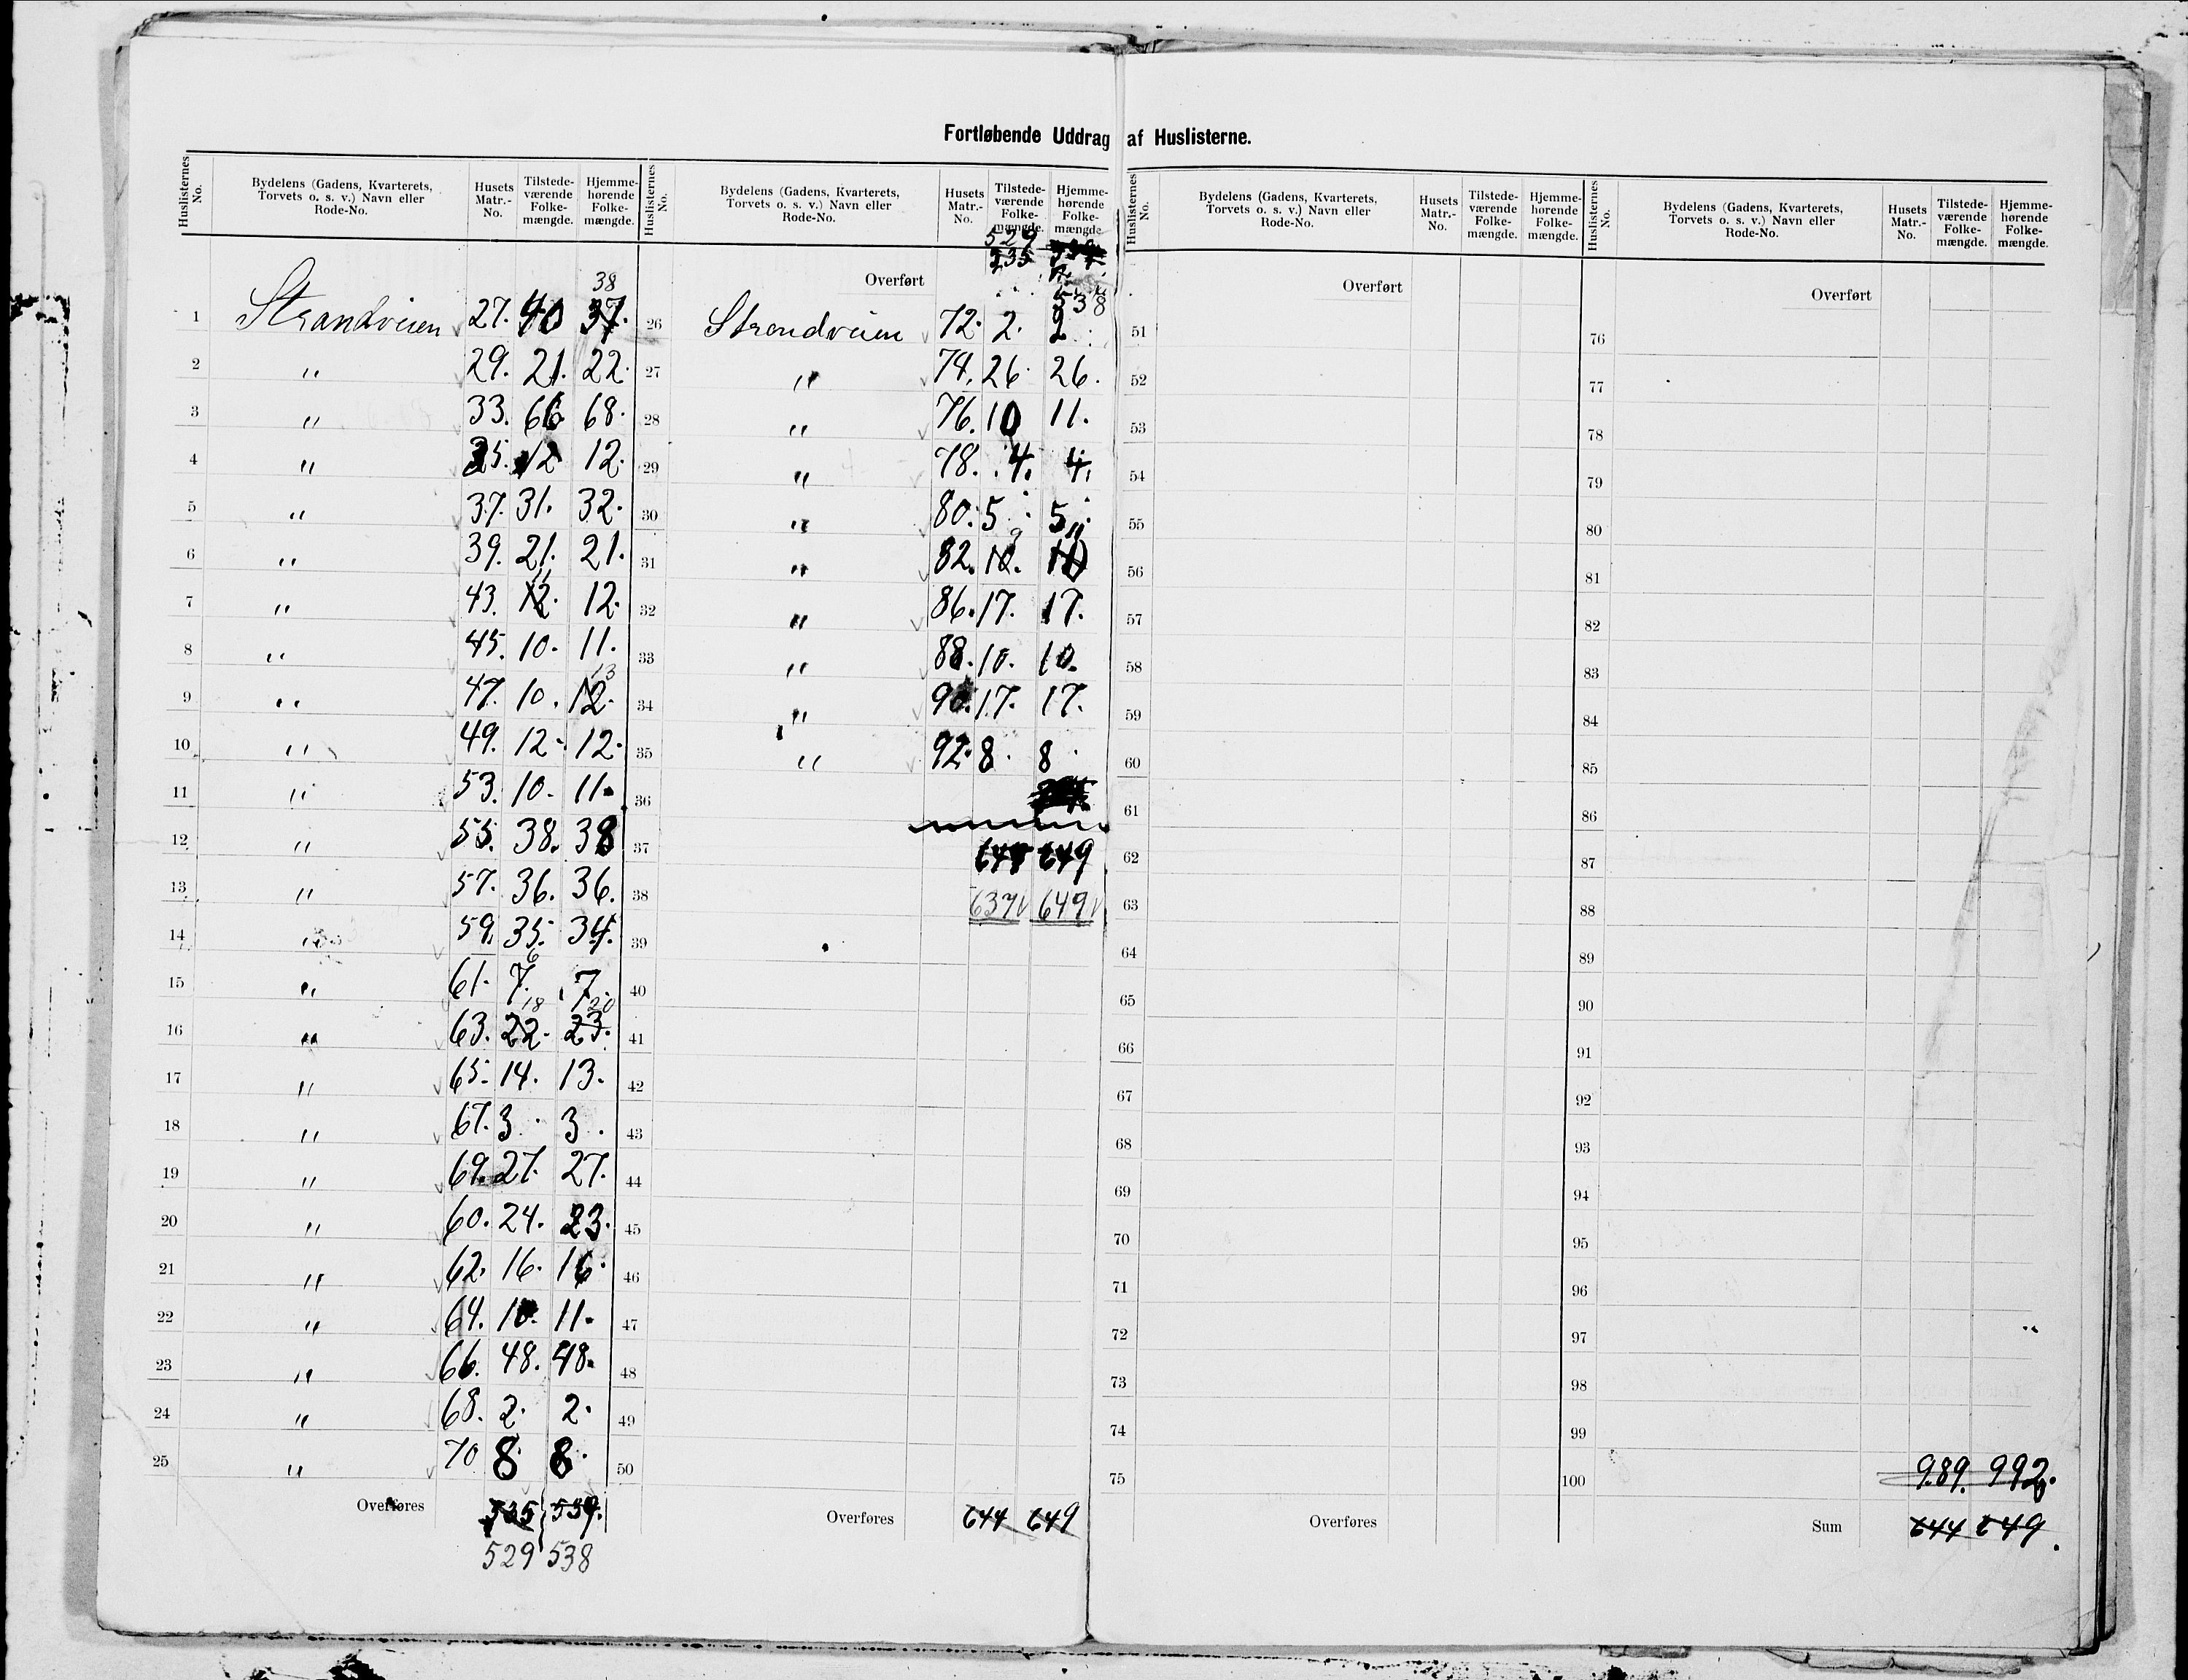 Fortløbende Uddrag af Huslisterne.
Huslisternes No. Bydelens (Gadens, Kvarterets, Torvets o. s. v.) Navn eller Rode-No. Husets Matr.-No. Tilstede-værende Folke-mængde. Hjemme-hørende Folke-mængde.
38
1 Strandveien 27. 40 37.
2 " 29. 21. 22.
3 " 33. 66 68.
4 " 35. 12 12.
5 " 37. 31. 32.
6 " 39. 21. 21.
11
7 " 43. 12. 12.
8 " 45. 10. 11.
13
9 " 47. 10. 12.
10 " 49. 12. 12.
11 " 53. 10. 11.
12 " 55. 38. 38
13 " 57. 36. 36.
14 " 59. 35. 34.
6
15 " 61. 7. 7.
18 20
16 " 63. 22. 23.
17 " 65. 14. 13.
18 " 67. 3. 3.
19 " 69. 27. 27.
20 " 60. 24. 23.
21 " 62. 16. 16.
22 " 64. 10. 11.
23 " 66. 48. 48.
24 " 68. 2. 2.
25 " 70 8. 8.
Overføres 535 539.
529 538
Huslisternes No. Bydelens (Gadens, Kvarterets, Torvets o. s. v.) Navn eller Rode-No. Husets Matr.-No. Tilstede-værende Folke-mængde. Hjemme-hørende Folke-mængde
529
Overført 535
538
26 Strandveien 72. 2. 2
27 " 74. 26. 26.
28 " 76. 10 11.
29 " 78. 4. 4.
30 " 80. 5. 5.
9 11
31 " 82. 10. 10
32 " 86. 17. 17.
33 " 88. 10. 10.
34 " 90. 17. 17.
35 " 92. 8. 8.
36
37 644 649
38 637 649
39
40
41
42
43
44
45
46
47
48
49
50
Overføres 644 649
Huslisternes No. Bydelens (Gadens, Kvarterets, Torvets o. s. v.) Navn eller Rode-No. Husets Matr.-No. Tilstede-værende Folke-mængde. Hjemme-hørende Folke-mængde.
Overført
51
52
53
54
55
56
57
58
59
60
61
62
63
64
65
66
67
68
69
70
71
72
73
74
75
Overføres
Huslisternes No. Bydelens (Gadens, Kvarterets, Torvets o. s. v.) Navn eller Rode-No. Husets Matr.-No. Tilstede-værende Folke-mængde. Hjemme-hørende Folke-mængde.
Overført
76
77
78
79
80
81
82
83
84
85
86
87
88
89
90
91
92
93
94
95
96
97
98
99
100 989. 992.
Sum 644 649.